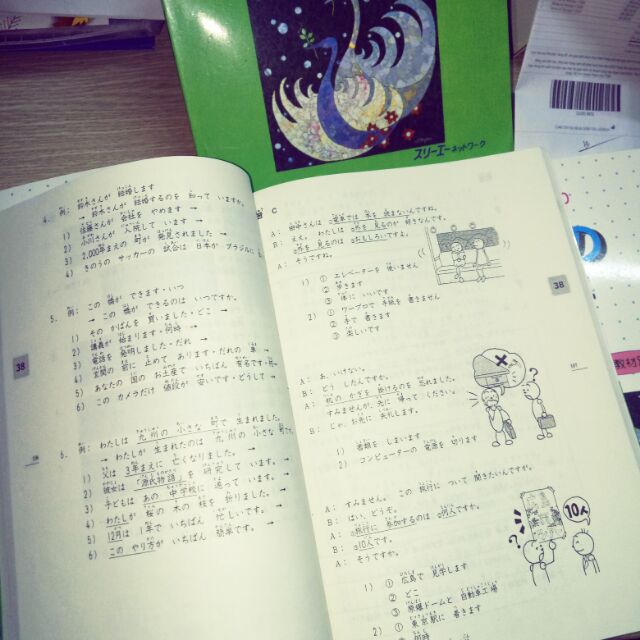 スリーエーネットワーク
4. 例: 鈴木さんが 結婚します
→ 鈴木さんが 結婚するのを 知って いますか。
1) 佐藤さんが 会社を やめます →
2) 小川さんが 入院して います →
3) 2,000年まえの 町が 発見されました →
4) きのうの サッカーの 試合は 日本が ブラジルに
5. 例: この 橋が できます・いつ
→ この 橋が できるのは いつですか。
1) その かばんを 買いました・どこ →
2) 講義が 始まります・何時 →
3) 電話を 発明しました・だれ →
4) 玄関の 前に 止めて あります・だれの 車 →
5) あなたの 国の お土産で いちばん 有名です・何
6) この カメラだけ 値段が 安いです・どうして
6. 例: わたしは 九州の 小さな 町で 生まれました。
→ わたしが 生まれたのは 九州の 小さな 町
1) 父は 3年まえに 亡くなりました。 →
2) 彼女は 「源氏物語」を 研究して います。 →
3) 子どもは あの 中学校に 通って います。 →
4) わたしが 桜の 木の 枝を 折りました。 →
5) 12月は 1年で いちばん 忙しいです。 →
6) この やり方が いちばん 簡単です。 →
38
C
A: さんは 電車では 本を 読まないんですね。
B: ええ。 わたしは 外を 見るのが 好きなんです。
外を 見るのは おもしろいですよ。
A: そうですね。
1) ① エレベーターを 使いません
② 歩きます
③ 体に いいです
2) ① ワープロで 手紙を 書きません
② 手で 書きます
③ 楽しいです
38
A: あ、いけない。
B: どう したんですか。
A: 机の かぎを 掛けるのを 忘れました。
すみませんが、先に 帰って ください。
B: じゃ、お先に 失礼します。
1) 書類を しまいます
2) コンピューターの 電源を 切ります
A: すみません。 この 旅行に ついて 聞きたいんですが。
B: はい、どうぞ。
A: 旅行に 参加するのは 何人ですか。
B: 10人です。
A: そうですか。
10人
1) ① 広島で 見学します
② どこ
③ 原爆ドームと 自動車工場
2) ① 東京駅に 着きます
② 何時
教材